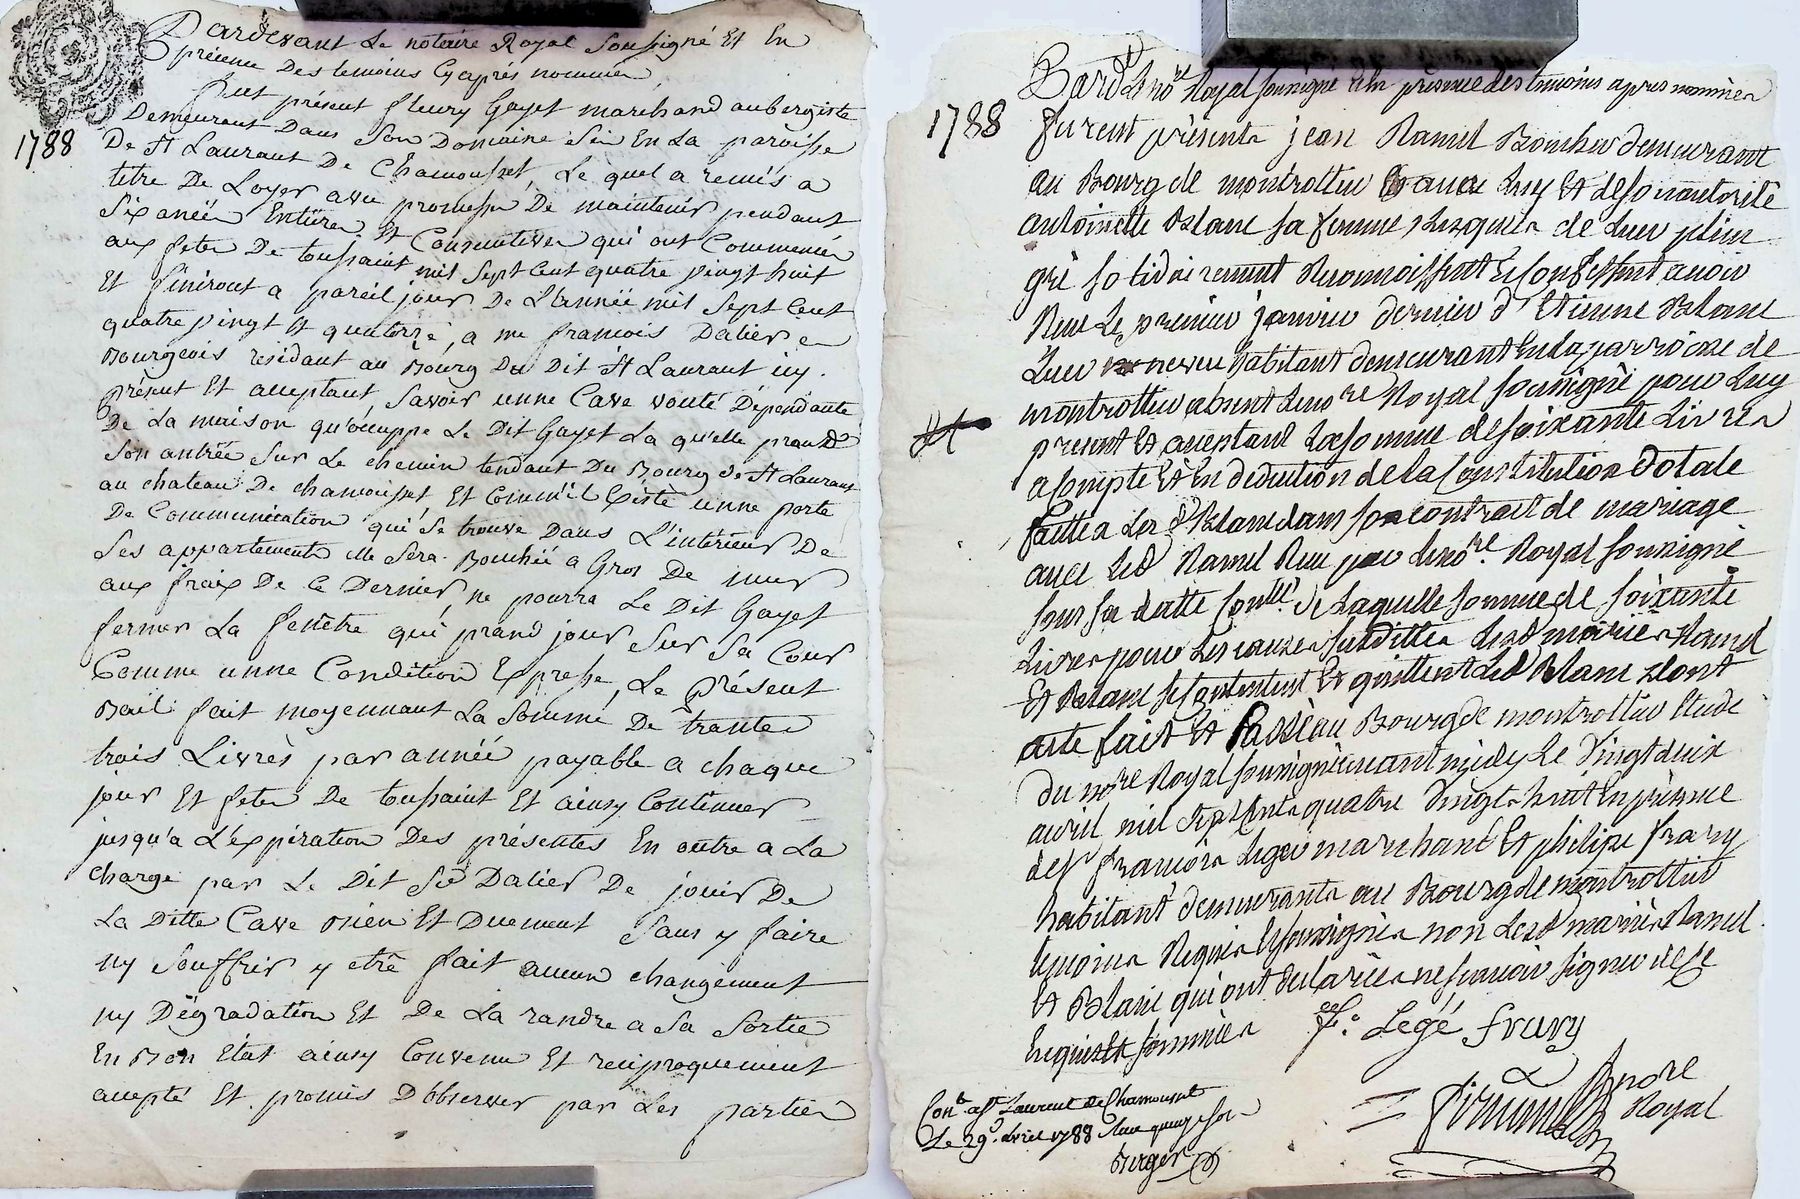 Pardevant Le notaire Royal Soussigné Et En
présence Des temoins Cy après nommés
fut présent fleury Gayet marchand aubergiste
Demeurant Dans Son Domaine Sis En La paroisse
1788
De St Laurant De Chamousset, Le quel a remis a
titre De Loyer avec promesse De maintenir pendant
Six anées Entières Et Consecutives qui ont Commencé
aux fetes De toussaint mil Sept Cent quatre vingt huit
Et finiront a pareil jour De L'année mil Sept Cent
quatre vingt Et quatorze, a me francois Dalier
Bourgeois résidant au Bourg Du Dit St Laurant icy
présent Et acceptant, Savoir unne Cave vouté Dépendante
De La maison qu'occuppe Le Dit Gayet La qu'elle prand
Son antrée Sur Le chemin tendant Du Bourg De St Laurant
au chateau De chamousset Et Comm'il Existe unne porte
De Communication qui Se trouve Dans L'intérieur De
Ses appartements elle Sera Bouchée a Gros De mur
aux fraix De Ce Dernier, ne pourra Le Dit Gayet
fermer La fenêtre qui prand jour Sur Sa Cour
Comme unne Condition Expresse, Le présent
Bail fait moyennant La Somme De trante
trois Livres par année payable a chaque
jour Et fetes De toussaint Et ainsy Continuer
jusqu'a L'éxpiration Des présentes En outre a La
charge par Le Dit Sr Dalier De jouir De
La Ditte Cave Bien Et Duement Sans y faire
ny Souffrir y etre fait aucun changement
ny Dégradation Et De La randre a Sa Sortie
En Bon Etat ainsy Convenu Et reciproquement
accepté Et promis D'observer par Les parties
Pard. Le nore Royal soussigné Et En présence des temoins apres nommés
1788
furent présents jean Ramel Boucher demeurant
au Bourg de montrottier Et avec Luy Et de son autorité
antoinette Blanc sa femme, Lesquels de Leur plein
gré solidairement Reconnoissent Et Confessent avoir
Reçu Le premier janvier dernier d'Etienne Blanc
Leur neveu habitant demeurant En La parroisse de
montrottier absent Le nore Royal soussigné pour Luy
present Et acceptant La somme de soixante Livres
a compte Et En deduction de La Constitution dotale
faitte a Lad Blanc dans son contrait de mariage
avec Led Ramel Reçu par Le nore Royal soussigné
sous sa datte Conlle de Laquelle somme de soixante
Livres pour Les causes susdittes Lesd mariés Ramel
Et Blanc se contentent Et quittent Led Blanc Dont
acte fait Et Passé au Bourg de montrottier Etude
du nore Royal soussigné avant midy Le vingt deux
avril mil sept Cents quatre vingts huit En présence
de sr francois Leger marchant Et philipe frary
habitant demeurants au Bourg de montrottier
temoins Requis Et soussignés non Lesd mariés Ramel
Et Blanc qui ont déclarés ne sçavoir signer de Ce
Enquis Et sommés
fs. Legé frury
nore
Royal
Conté a St Laurent de Chamousset
Le 29 Avril 1788 Reçu quinze sols
Berger